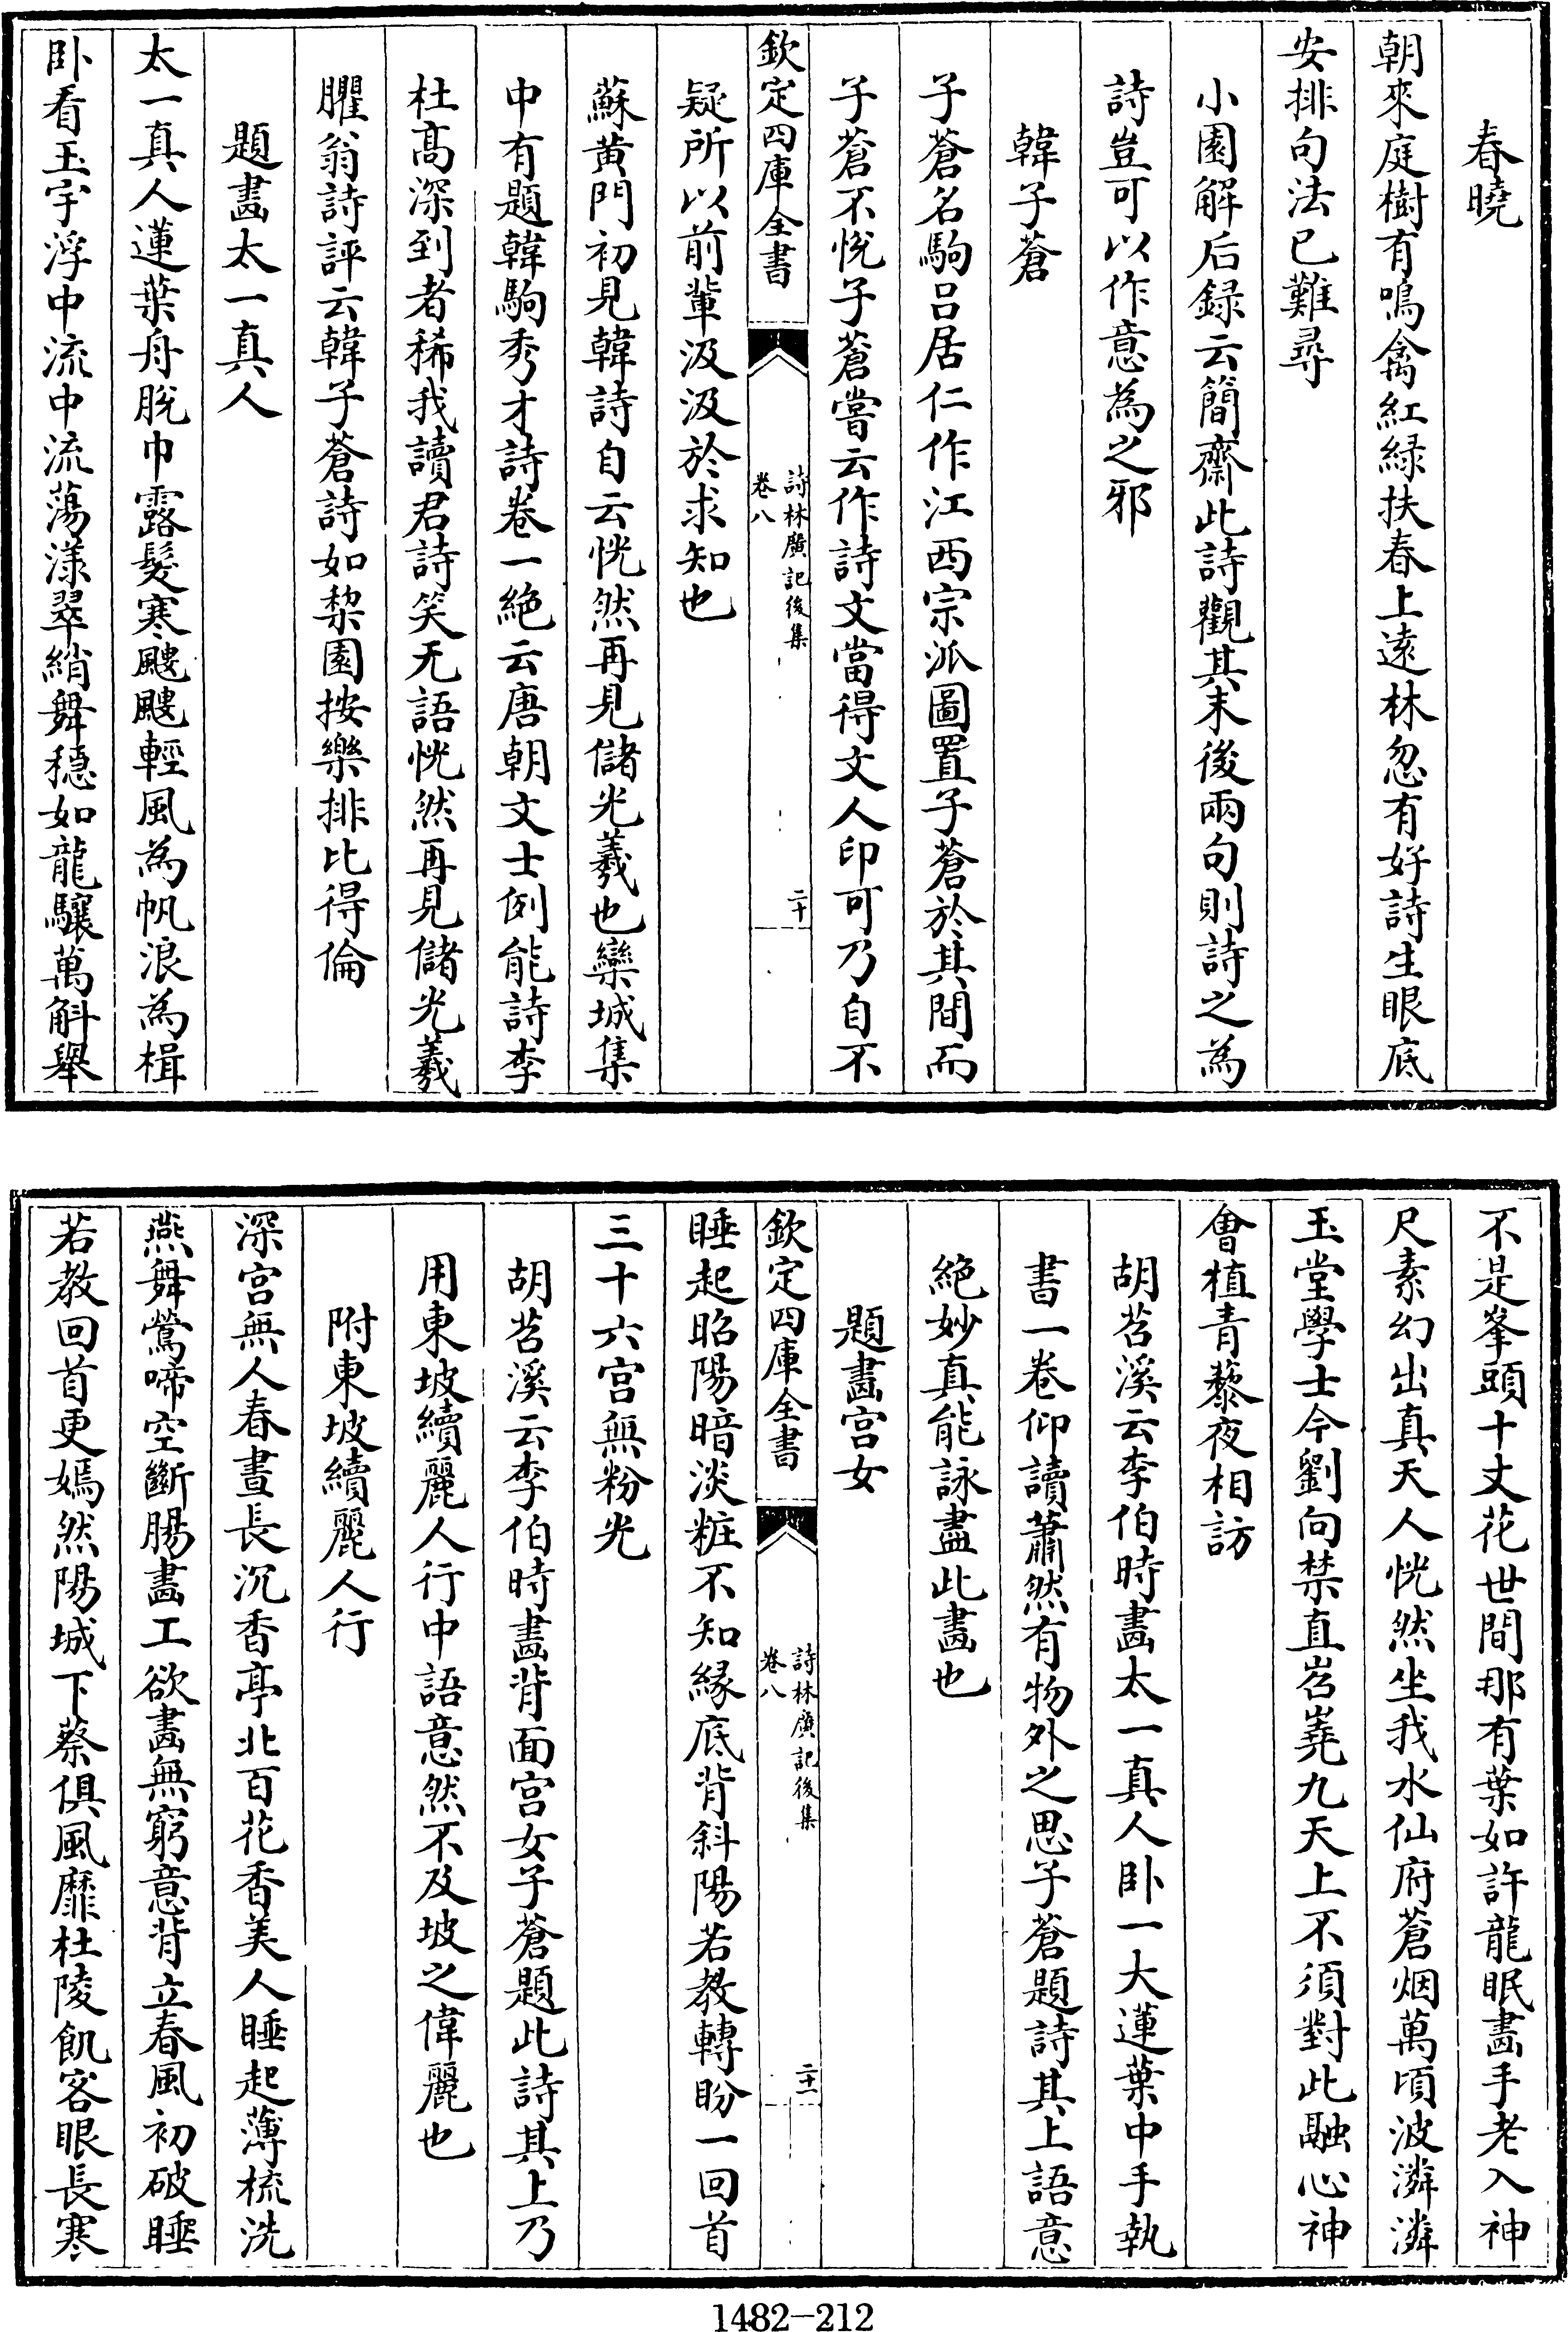 春曉
朝來庭樹有鳴禽紅緑扶春上遠林忽有好詩生眼底
安排句法已難尋
小園解后録云簡齋此詩觀其末後兩句則詩之為
詩豈可以作意為之邪
韓子蒼
子蒼名駒呂居仁作江西宗派圖置子蒼於其間而
子蒼不悅子蒼嘗云作詩文當得文人印可乃自不
欽定四庫全書
詩林廣記後集
卷八
二十
疑所以前輩汲汲於求知也
蘇黄門初見韓詩自云恍然再見儲光羲也欒城集
中有題韓駒秀才詩卷一絶云唐朝文士例能詩李
杜髙深到者稀我讀君詩笑无語恍然再見儲光羲
臞翁詩評云韓子蒼詩如棃園按樂排比得倫
題畫太一真人
太一真人蓮葉舟脫巾露髮寒颼颼輕風為帆浪為楫
卧看玉宇浮中流中流蕩漾翠綃舞穩如龍驤萬斛舉
不是峯頭十丈花世間那有葉如許龍眠畫手老入神
尺素幻出真天人恍然坐我水仙府蒼烟萬頃波潾潾
玉堂學士今劉向禁直岧嶤九天上不須對此融心神
㑹植青藜夜相訪
胡苕溪云李伯時畫太一真人卧一大蓮葉中手執
書一卷仰讀蕭然有物外之思子蒼題詩其上語意
絶妙真能詠盡此畫也
題畫宫女
欽定四庫全書
詩林廣記後集
卷八
二十一
睡起昭陽暗淡粧不知緣底背斜陽若教轉盼一回首
三十六宫無粉光
胡苕溪云李伯時畫背面宫女子蒼題此詩其上乃
用東坡續麗人行中語意然不及坡之偉麗也
附東坡續麗人行
深宫無人春晝長沉香亭北百花香美人睡起薄梳洗
燕舞鶯啼空斷腸畫工欲畫無窮意背立春風初破睡
若教回首更嫣然陽城下蔡俱風靡杜陵飢客眼長寒
1482-212